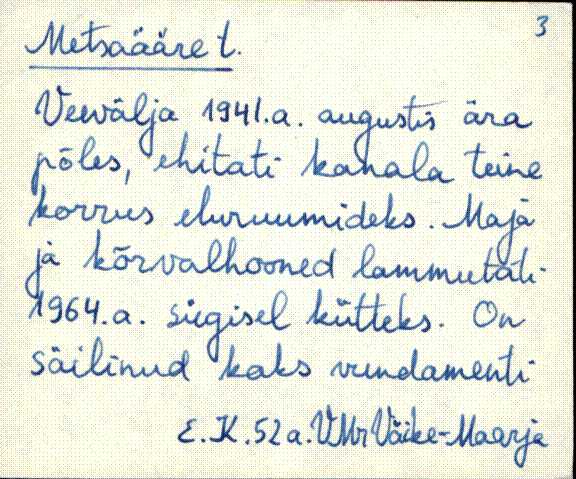 3
Metsaääre t.
Veevälja 1941.a. augustis ära
põles, ehitati kanala teine
korrus eluruumideks. Maja
ja kõrvalhooned lammutati
1964.a. sügisel kütteks. On
säilinud kaks vundamenti
E.K. 52 a. VMr Väike-Maarja